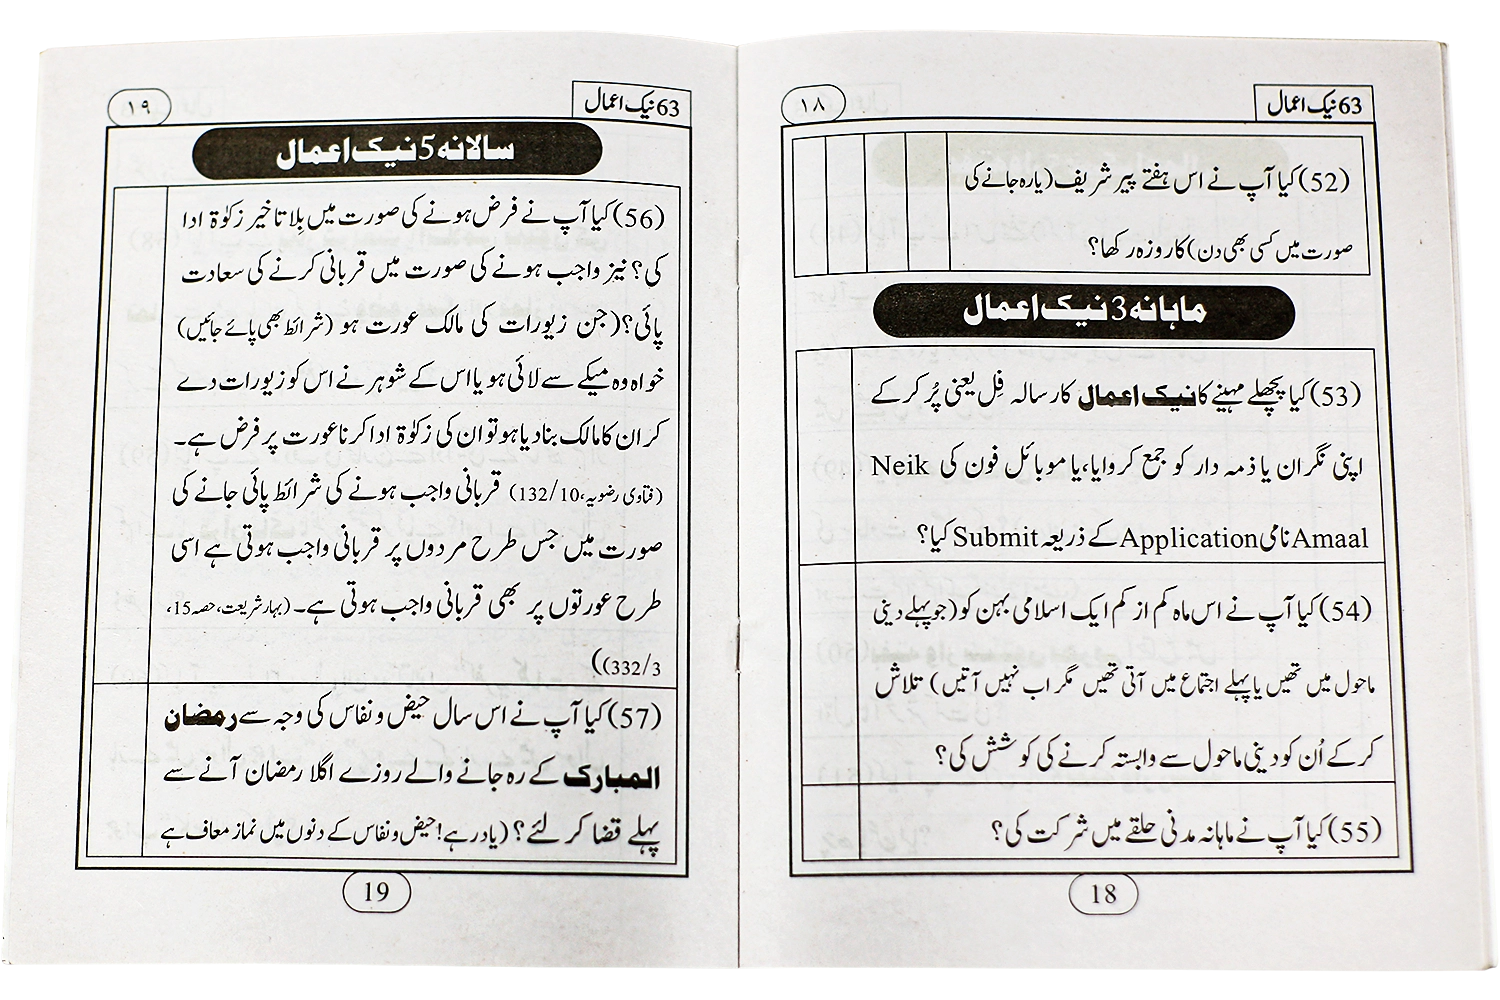 63 نیک اعمال
۱۸
(52) کیا آپ نے اس ہفتے پیر شریف (یا رہ جانے کی
صورت میں کسی بھی دن) کا روزہ رکھا؟
ماہانہ 3 نیک اعمال
(53) کیا پچھلے مہینے کا نیک اعمال کا رسالہ فِل یعنی پُر کر کے
اپنی نگران یا ذمہ دار کو جمع کروایا، یا موبائل فون کی Neik
Amaal نامی Application کے ذریعہ Submit کیا؟
(54) کیا آپ نے اس ماہ کم از کم ایک اسلامی بہن کو (جو پہلے دینی
ماحول میں تھیں یا پہلے اجتماع میں آتی تھیں مگر اب نہیں آتیں) تلاش
کر کے اُن کو دینی ماحول سے وابستہ کرنے کی کوشش کی؟
(55) کیا آپ نے ماہانہ مدنی حلقے میں شرکت کی؟
18
63 نیک اعمال
۱۹
سالانہ 5 نیک اعمال
(56) کیا آپ نے فرض ہونے کی صورت میں بِلا تاخیر زکوٰۃ ادا
کی؟ نیز واجب ہونے کی صورت میں قربانی کرنے کی سعادت
پائی؟ (جن زیورات کی مالک عورت ہو (شرائط بھی پائے جائیں)
خواہ وہ میکے سے لائی ہو یا اس کے شوہر نے اس کو زیورات دے
کر ان کا مالک بنا دیا ہو تو ان کی زکوٰۃ ادا کرنا عورت پر فرض ہے۔
(فتاوی رضویہ، 132/10) قربانی واجب ہونے کی شرائط پائی جانے کی
صورت میں جس طرح مردوں پر قربانی واجب ہوتی ہے اسی
طرح عورتوں پر بھی قربانی واجب ہوتی ہے۔ (بہار شریعت، حصہ 15،
332/3))
(57) کیا آپ نے اس سال حیض و نفاس کی وجہ سے رمضان
المبارک کے رہ جانے والے روزے اگلا رمضان آنے سے
پہلے قضا کر لئے؟ (یاد رہے! حیض و نفاس کے دنوں میں نماز معاف ہے
19